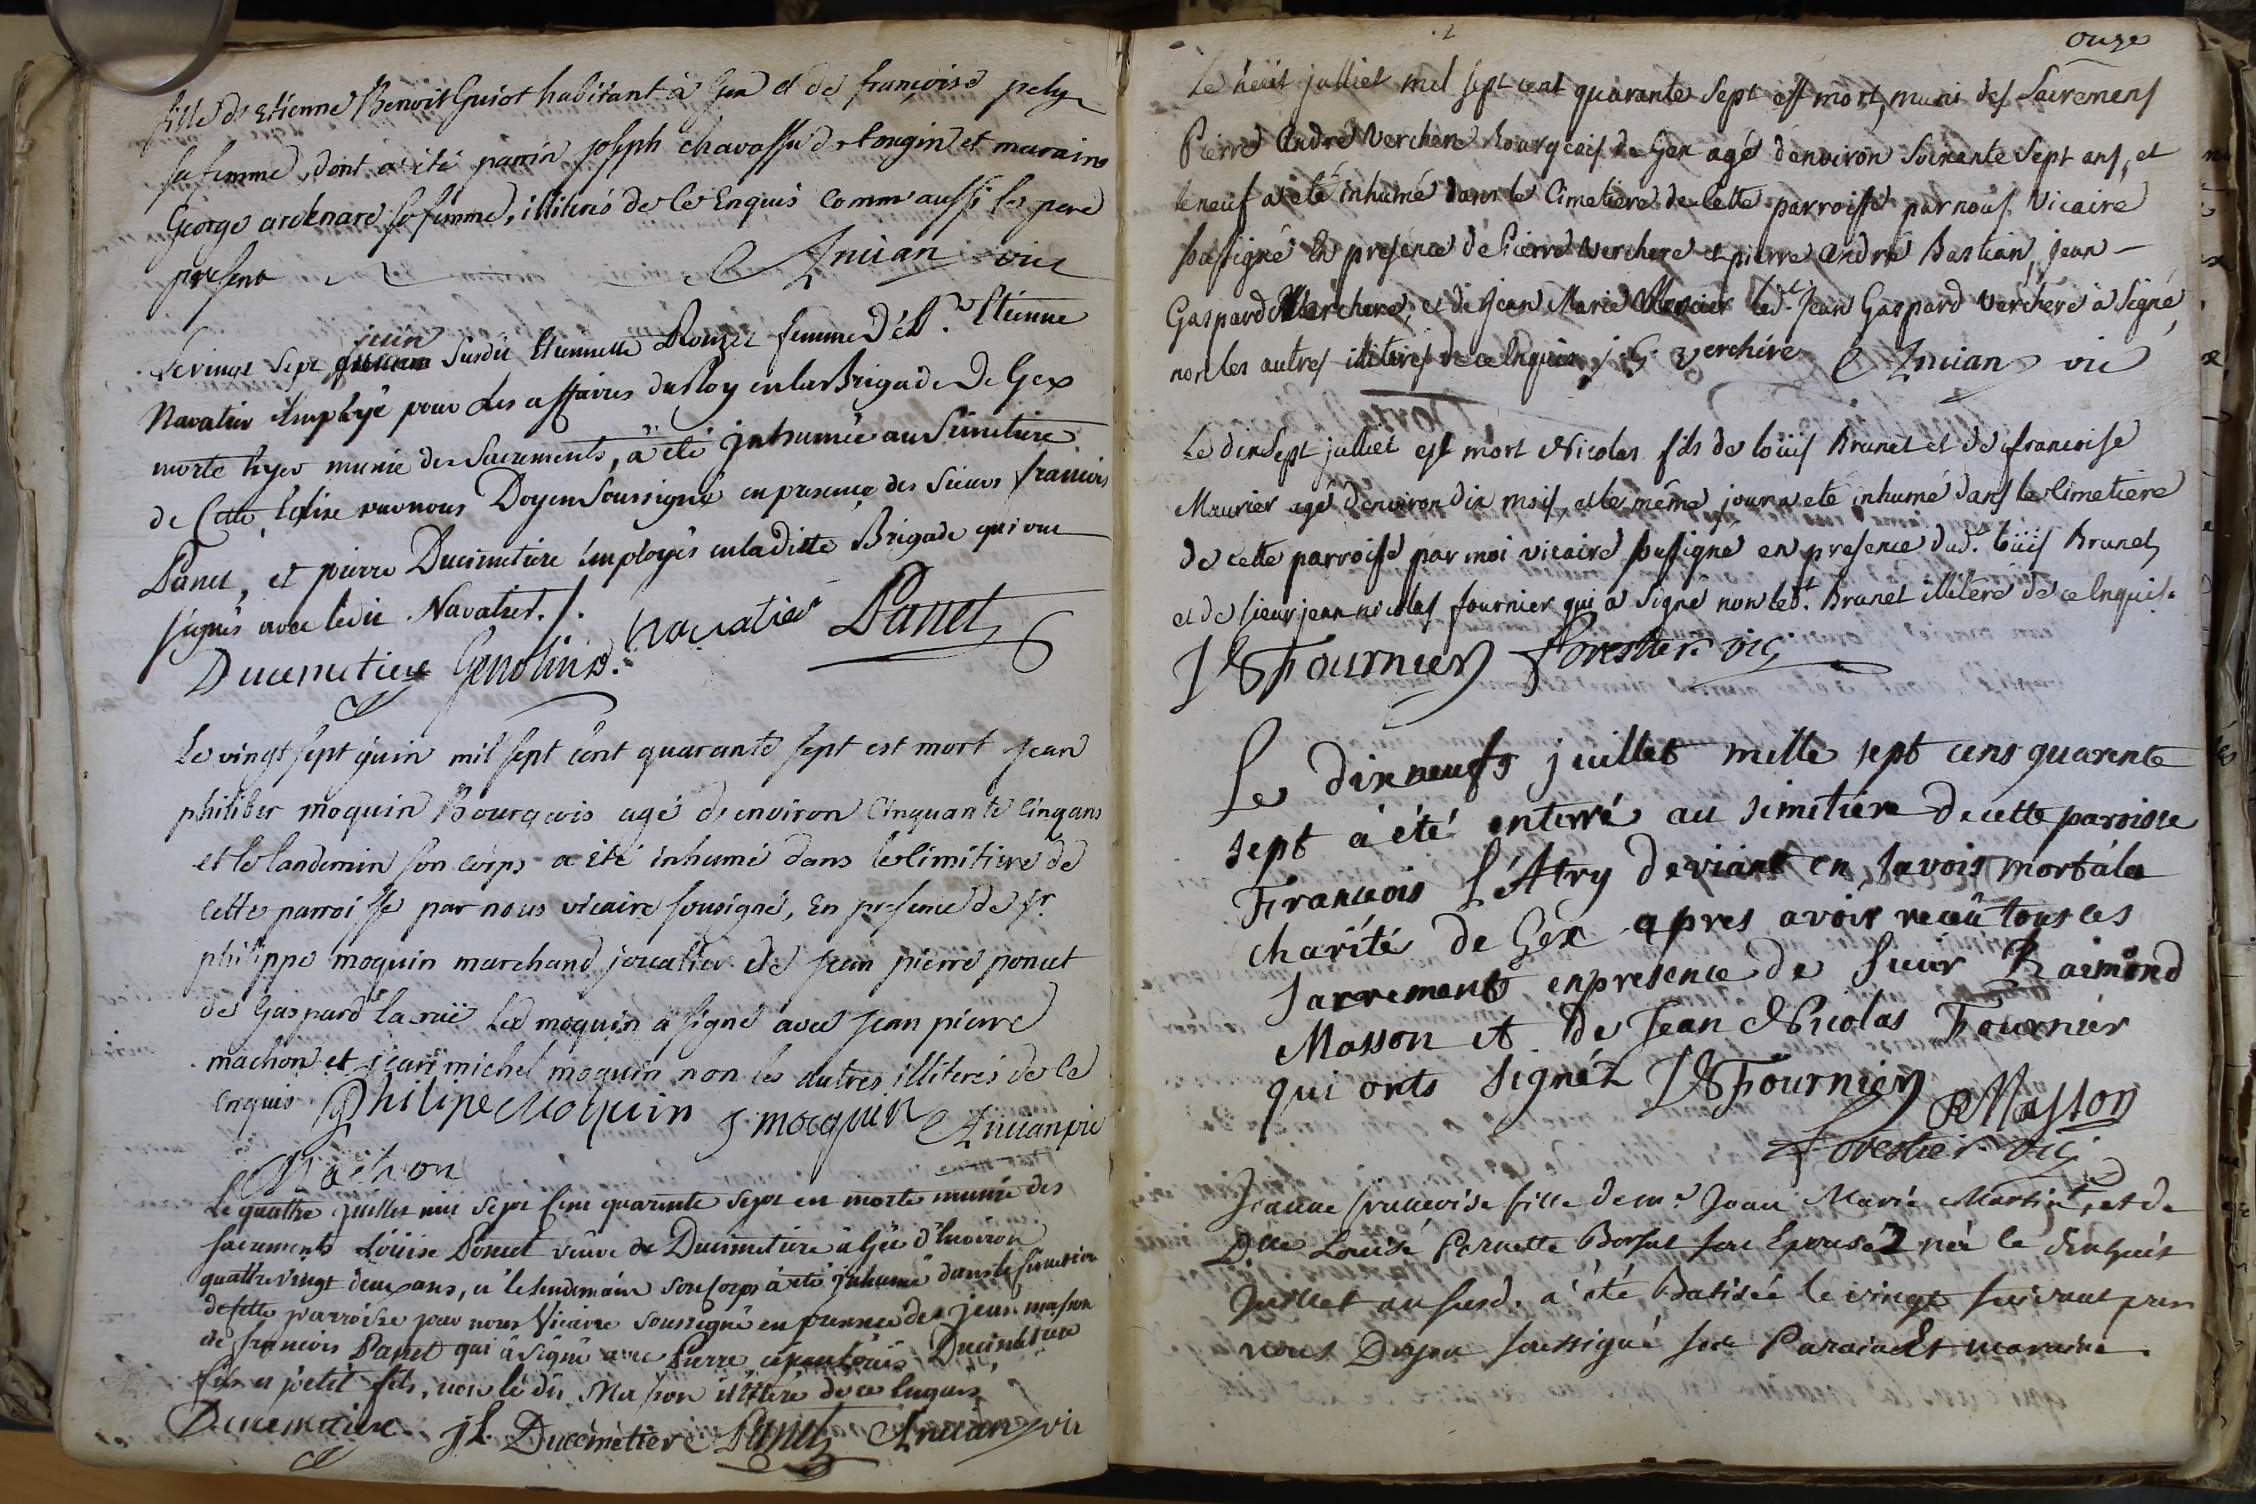 fille de Etienne Benoit Guiot habitant à Gex et de françoise pely
sa femme, dont a été parrin joseph chavassu de longin et maraine
George sa femme, illiterés de ce Enquis comme aussi le pere
present Anician vic
Le vingt Sept juin Susdit Etiennette Rouzet femme d'Et. Etienne
Navatier Employé pour les affaires du Roy en la Brigade De Gex
morte hyer munie des Sacrements, à été Inhumée au Simetiere
de Cette Eglise par nous Doyen Soussigné en presence des Sieurs francois
Panet, et pierre Ducimetiere Employés en la Ditte Brigade qui ont
signés avec ledit Navatier./.
Ducemetiere Genolin d. Navatier Panet
Le vingt sept juin mil sept cent quarante sept est mort jean
philiber moquin Bourgeois agé d'environ Cinquante Cinq ans
et le landemin son corps a été inhumé dans le Cimitiere de
cette parroisse par nous vicaire sousigné, En presence de Sr.
philippe moquin marchand joualier et de jean pierre ponet
de Gaspard laruë Led moquin a signé avec jean pierre
machon et jean michel moquin non les autres illiterés de ce
enquis Philipe Moquin J. mocquin Anician vic
Machon
Le quattre juillet mil sept Cent quarante sept est morte munie des
sacrements Loüise Ponet veuve de Ducimetiere à Gex d'Environ
quattre vingt deux ans, et le lendemain son Corps à été inhumé dans le Simetiere
de cette parroisse par nous Vicaire soussigné en presence de jean masson
et francois Panet qui à signé avec Pierre et jean Loüis Ducimetiere
fils et petit fils, non le dit Masson illitéré de ce Enquis
Ducemetiere JL. Ducimetiere Panet Anician vic
onze
Le huit julliet mil sept cent quarante Sept est mort, muni des Sacremens
Pierre André Verchere bourgeois de Gex agé d'environ Soixante Sept ans, et
le neuf a été inhumé dans le Cimetiere de Cette parroisse par nous Vicaire
soussigné en presence de Pierre Verchere et pierre andré Bastian, jean
Gaspard Verchere, et de jean Marie Mercier led. Jean Gaspard Verchere à Signé,
non les autres illiteres de ce Enquis J. G. Verchère Anician vic
Le dix Sept julliet est mort Nicolas fils de loüis Brunet et de francoise
Maurier agé d'environ dix mois, et le même jour a eté inhumé dans le Cimetiere
de cette parroisse par moi vicaire soussigné en presence dud. loüis Brunet
et de sieur jean nicolas fournier qui a Signé non led. Brunet illiteré de ce Enquis.
JN Fournier Forestier vic
Le dixneufs juillet mille sept cens quarente
sept à été enterré au Simetiére de cette paroisse
Francois Létry deviant en Savois mort à la
charité de Géx apres avoir receû tous les
Sacrements en presence de Sieur Raimond
Masson et de Jean Nicolas Fournier
qui onts signéz JN Fournier RMasson
Forestier vic
Jeanne francoise fille de mr. Jean Marie Martin, et de
Dlle Louise Pernette Borsat son Epouse née le dixhuit
Juillet an susd. à été Batisée le vingt suivant par
nous Doyen soussigné son Parain Et maraine.